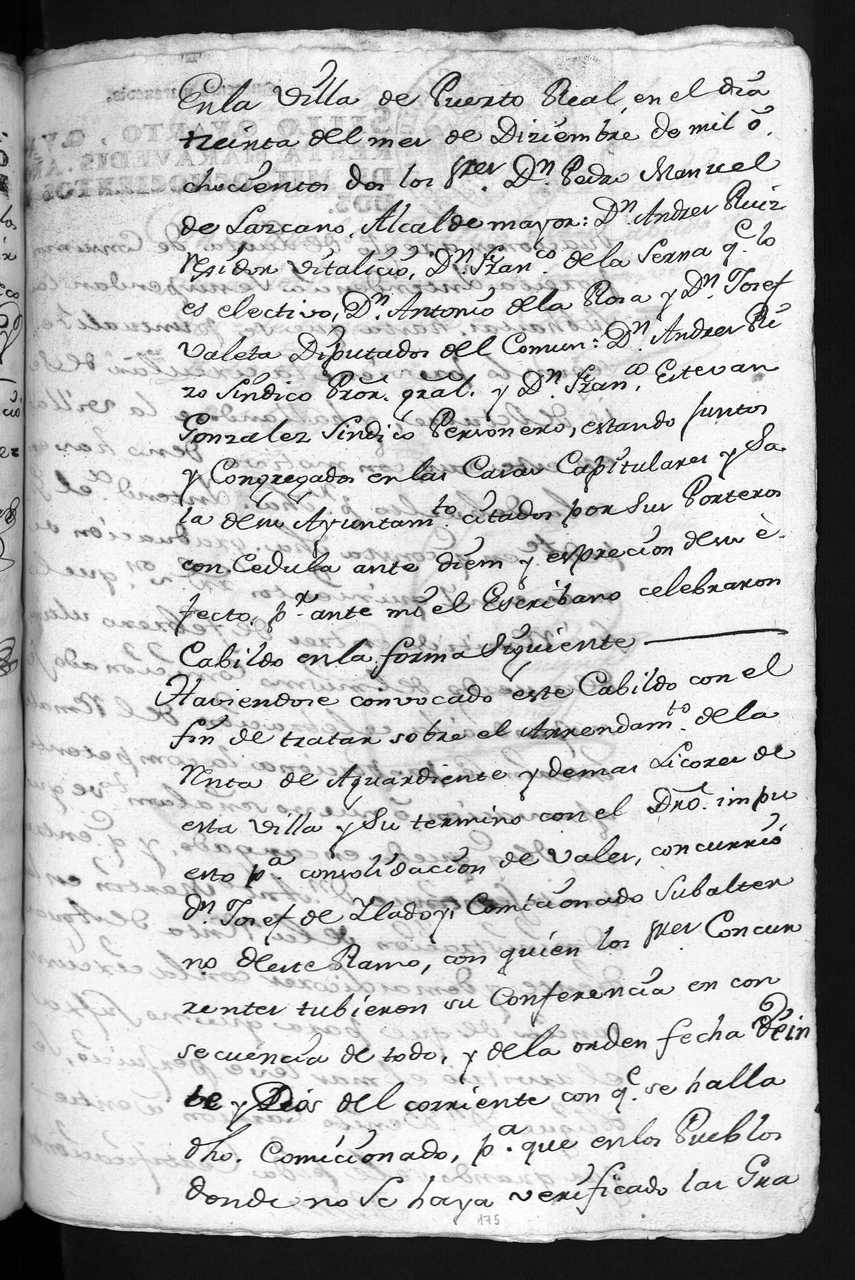 En la Villa de Puerto Real, en el dia
treinta del mes de Diziembre de mil o-
chocientos dos los sres. Dn. Pedro Manuel
de Lazcano, Alcalde mayor: Dn. Andres Ruiz
Rexidor Vitalicio, Dn. Franco. de la Serna qe. lo
es electivo, Dn. Antonio de la Rosa y Dn. Josef
Valeta Diputados del Comun: Dn. Andres Ri
zo Sindico Pror. gral. y Dn. Franco. Estevan
Gonzalez Sindico Personero, estando juntos
y Congregados en las Casas Capitulares y Sa
la de su Ayuntamto. citados por sus Porteros
con Cedula ante diem y espresion de su e-
fecto, pr. ante mi el Escribano celebraron
Cabildo en la forma Siguiente
Haviendose convocado este Cabildo con el
fin de tratar sobre el Arrendamto. de la
Renta de Aguardiente y demas Licores de
esta Villa y Su termino con el Dro. impu
esto pa. consolidacion de Vales, concurrió
dn. Josef de Lladoy, Comicionado Subalter
no de este Ramo, con quien los sres Concur
rentes tubieron su Conferencia en con
secuencia de todo, y de la orden fecha Vein
te y Dos del corriente con qe. se halla
dho. Comicionado, pa. que en los Pueblos
donde no Se haya verificado las Gra
175